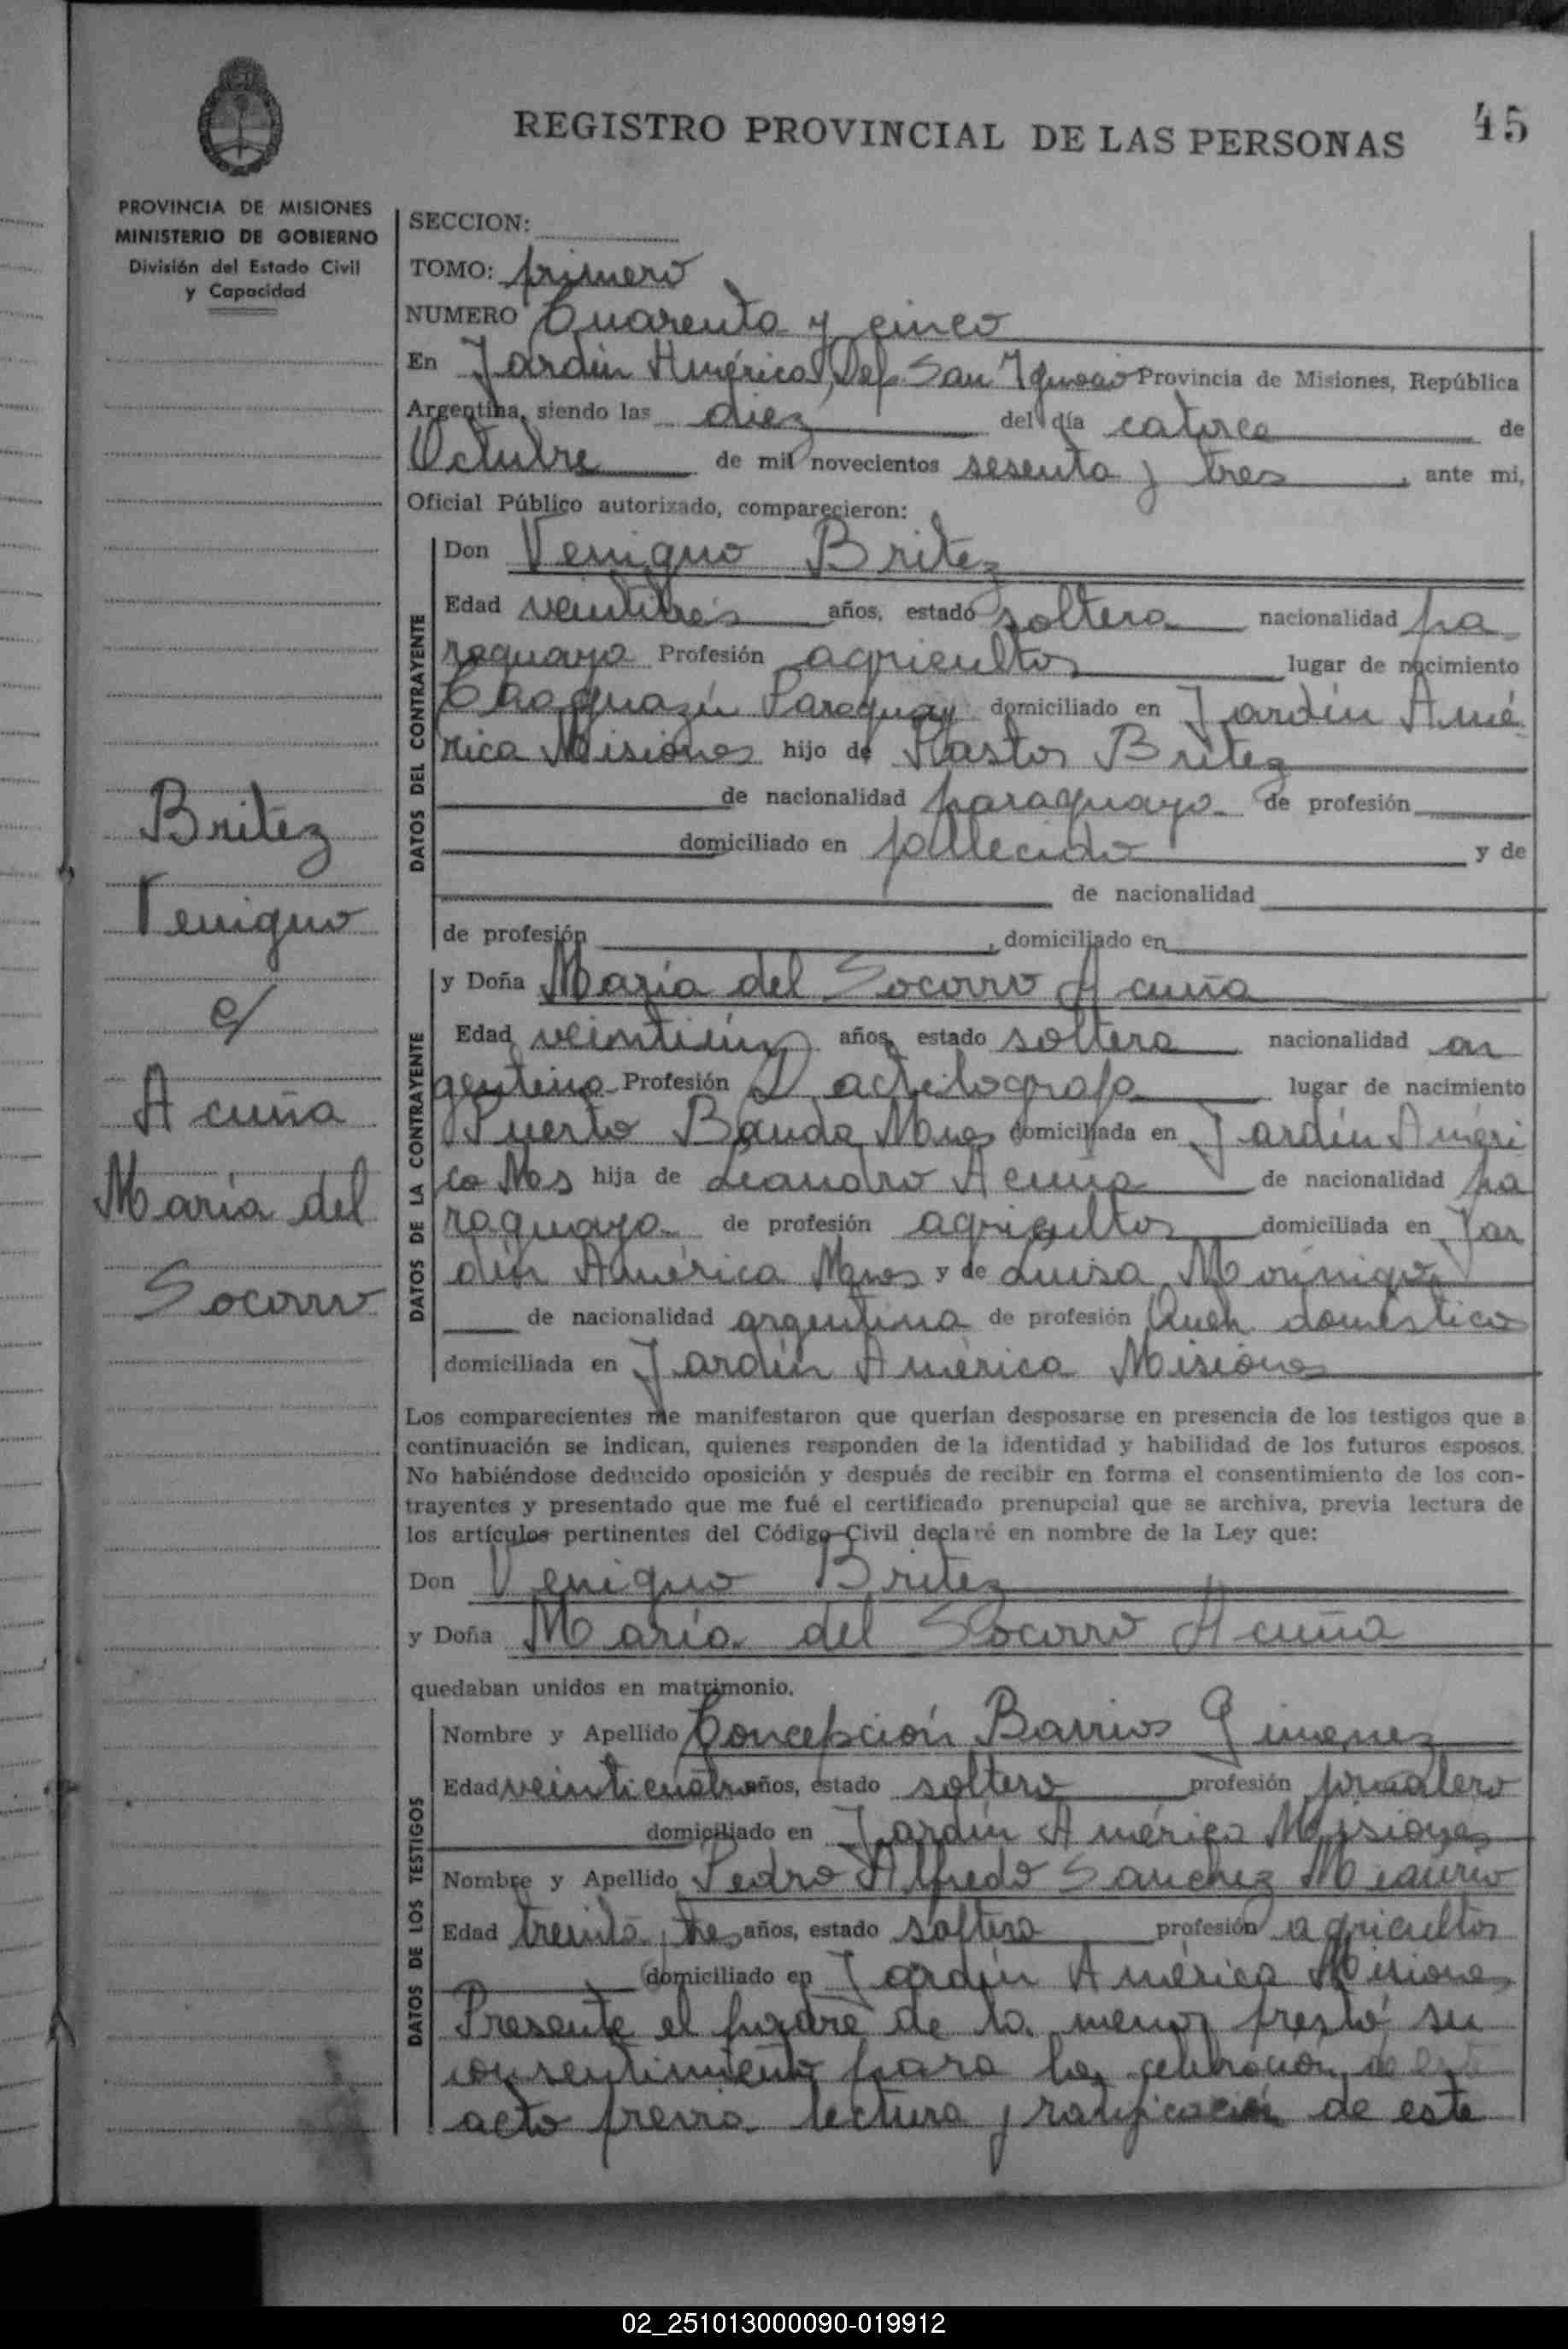 REGISTRO PROVINCIAL DE LAS PERSONAS
45
PROVINCIA DE MISIONES
MINISTERIO DE GOBIERNO
División del Estado Civil
y Capacidad
Britez
Venigno
c/
Acuña
María del
Socorro
SECCION:
TOMO: primero
NUMERO Cuarenta y cinco
En Jardín América, Dep. San Ignacio Provincia de Misiones, República
Argentina, siendo las diez del día catorce de
Octubre de mil novecientos sesenta y tres, ante mi,
Oficial Público autorizado, comparecieron:
DATOS DEL CONTRAYENTE
Don Venigno Britez
Edad veintitrés años, estado soltero nacionalidad pa
raguaya Profesión agricultor lugar de nacimiento
Caaguazú Paraguay domiciliado en Jardín Amé
rica Misiones hijo de Britez
de nacionalidad paraguaya de profesión
domiciliado en fallecido y de
de nacionalidad
de profesión, domiciliado en
DATOS DE LA CONTRAYENTE
y Doña María del Socorro Acuña
Edad veintiún años, estado soltera nacionalidad ar
gentina Profesión Dactilografa lugar de nacimiento
Puerto Mnes domiciliada en Jardín Améri
ca Mes hija de Leandro Acuña de nacionalidad pa
raguaya de profesión agricultor domiciliada en Jar
dín América Mnes y de Luisa Morinigo
de nacionalidad argentina de profesión Queh. domésticos
domiciliada en Jardín América Misiones
Los comparecientes me manifestaron que querían desposarse en presencia de los testigos que a
continuación se indican, quienes responden de la identidad y habilidad de los futuros esposos.
No habiéndose deducido oposición y después de recibir en forma el consentimiento de los con-
trayentes y presentado que me fué el certificado prenupcial que se archiva, previa lectura de
los artículos pertinentes del Código Civil declaré en nombre de la Ley que:
Don Venigno Britez
y Doña María del Socorro Acuña
quedaban unidos en matrimonio.
DATOS DE LOS TESTIGOS
Nombre y Apellido Concepción Barrios Gimenez
Edad veinticuatro años, estado soltero profesión jornalero
domiciliado en Jardín América Misiones
Nombre y Apellido Pedro Alfredo Sanchez
Edad treinta y tres años, estado soltero profesión agricultor
domiciliado en Jardín América Misiones
Presente el padre de la menor prestó su
consentimiento para la celebración de este
acto previa lectura y ratificación de este
02_251013000090-019912